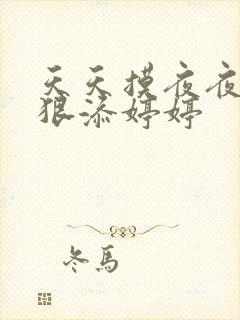 天天摸夜夜
狠添婷婷
冬馬